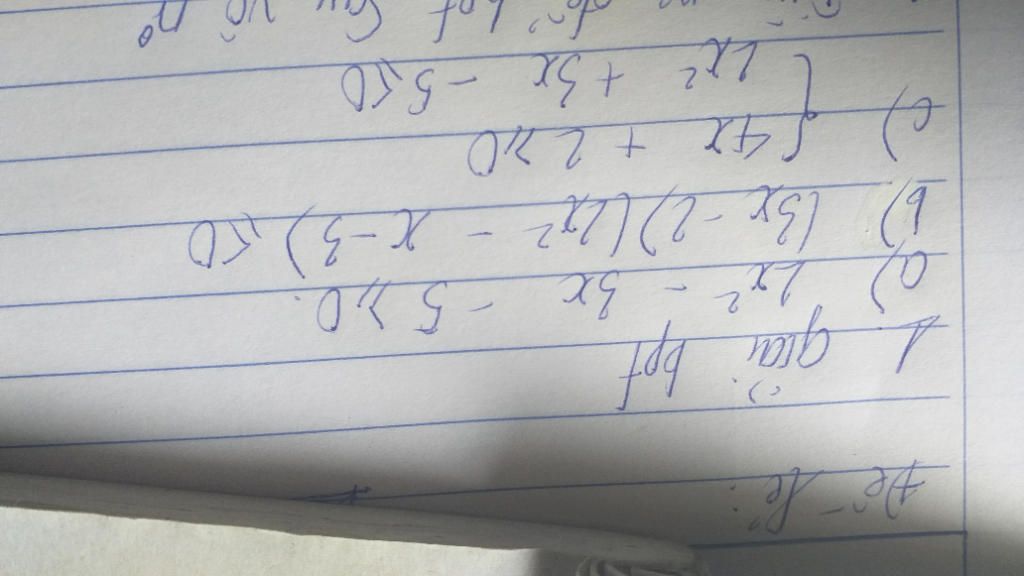 Đề lẻ:
1 giải bpt
a) 2x² - 3x - 5 ≥ 0.
b) (3x - 2)(2x² - x - 3) ≤ 0
c) { 4x + 2 ≥ 0
2x² + 3x - 5 ≤ 0
m để bpt sau vô n⁰